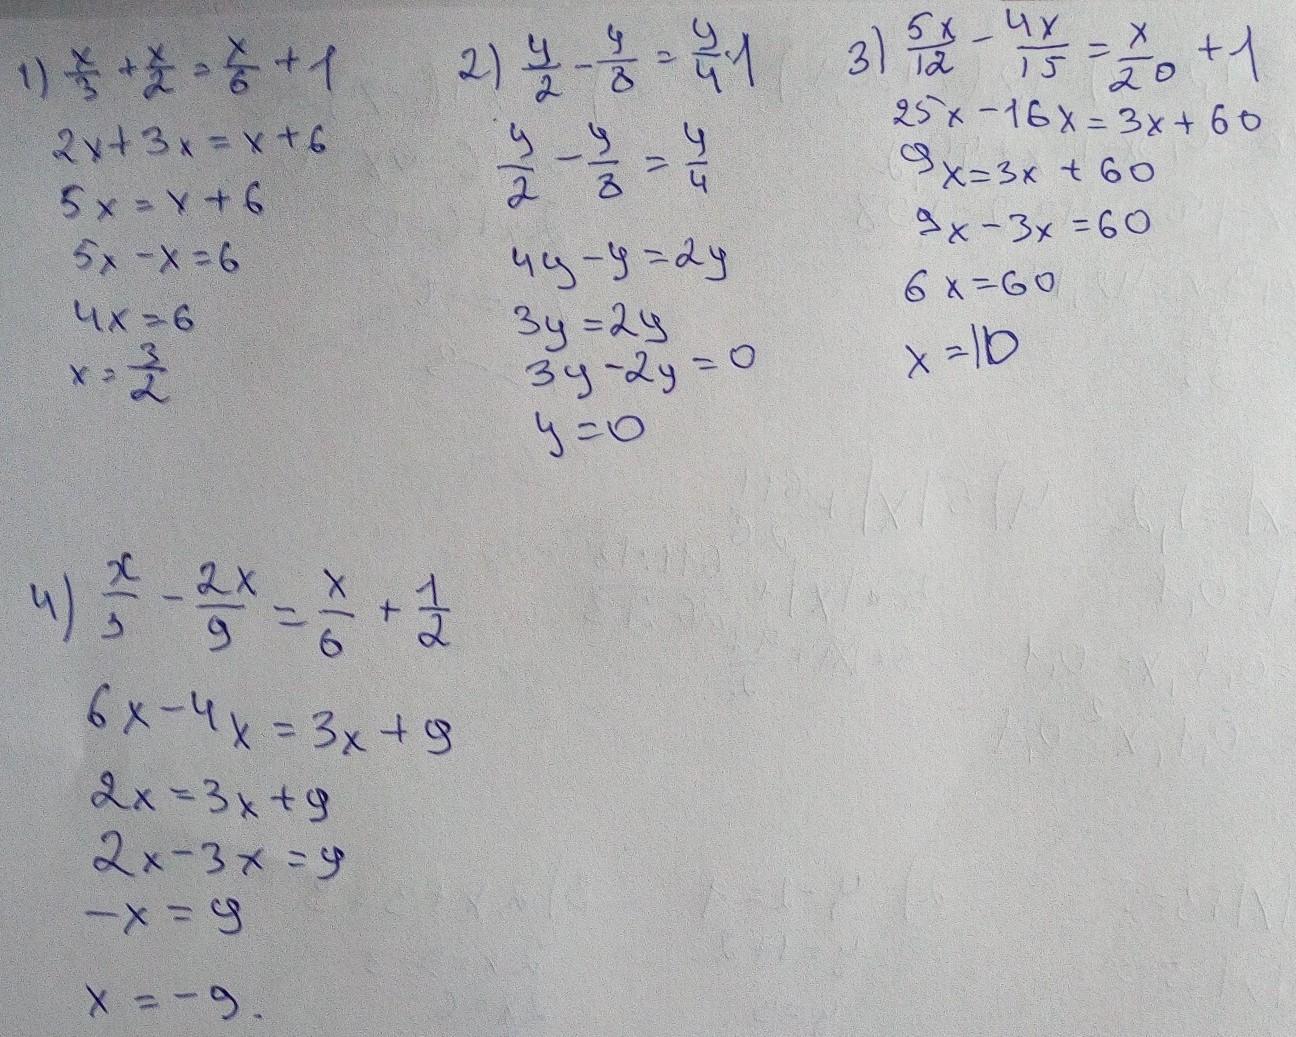 1) x/3 + x/2 = x/6 + 1
2x + 3x = x + 6
5x = x + 6
5x - x = 6
4x = 6
x = 3/2
2) y/2 - y/8 = y/4 · 1
y/2 - y/8 = y/4
4y - y = 2y
3y = 2y
3y - 2y = 0
y = 0
3) 5x/12 - 4x/15 = x/20 + 1
25x - 16x = 3x + 60
9x = 3x + 60
9x - 3x = 60
6x = 60
x = 10
4) x/3 - 2x/9 = x/6 + 1/2
6x - 4x = 3x + 9
2x = 3x + 9
2x - 3x = 9
-x = 9
x = -9.